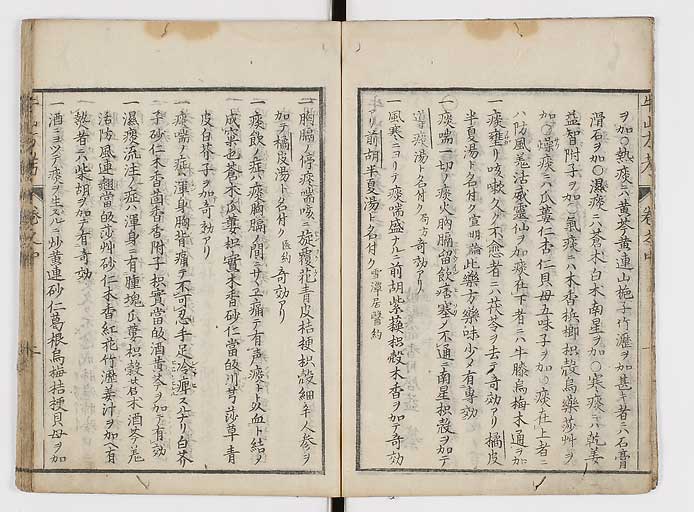 ヲ加○熱痰ニハ黄芩黄連山梔子竹瀝ヲ加甚キ者ニハ石膏
滑石ヲ加○濕痰ニハ蒼朮白朮南星ヲ加○寒痰ニハ乾姜
益智附子ヲ加○氣痰ニハ木香梹榔枳殻烏藥莎艸ヲ
加○燥痰ニハ瓜蔞仁杏仁貝母五味子ヲ加○痰在上者ニ
ハ防風羗活威靈仙ヲ加痰在下者ニハ牛膝烏梅木通ヲ加
一痰壅リ咳嗽久ク不愈者ニハ茯苓ヲ去テ奇効アリ橘皮
半夏湯ト名付ク宣明論此藥方藥味少メ有専効
○痰喘一切ノ痰火胸膈留飲痞塞メ不通ニ南星枳殻ヲ加テ
導痰湯ト名付ク奇効アリ
一風寒ニヨリテ痰喘盛ナルニ前胡紫蘓枳殻木香ヲ加テ奇効
アリ前胡半夏湯ト名付ク雪潭居醫約
一胸膈ノ停痰喘咳ニ旋覆花青皮桔梗枳殻細辛人参ヲ
加テ橘皮湯ト名付ク医約奇効アリ
一痰飲ノ症痰胸膈ノ間ニサ
成窠也蒼朮瓜蔞枳實木香砂仁當皈川芎莎草青
皮白芥子ヲ加奇効アリ
一痰喘ノ症渾身胸背痛テ不可忍手足冷痺スルニリ白芥
子砂仁木香茴香香附子枳實當皈酒黄芩ヲ加テ有効
一濕痰流注ノ症ハ渾身ニ有腫塊瓜蔞枳殻蒼朮酒芩羗
活防風連翹當皈莎艸砂仁木香紅花竹瀝姜汁ヲ加有
熱者ニハ柴胡ヲ加テ有奇効
一酒ニヨツテ痰ヲ生スルニ炒黄連砂仁葛根烏梅桔梗貝母ヲ加